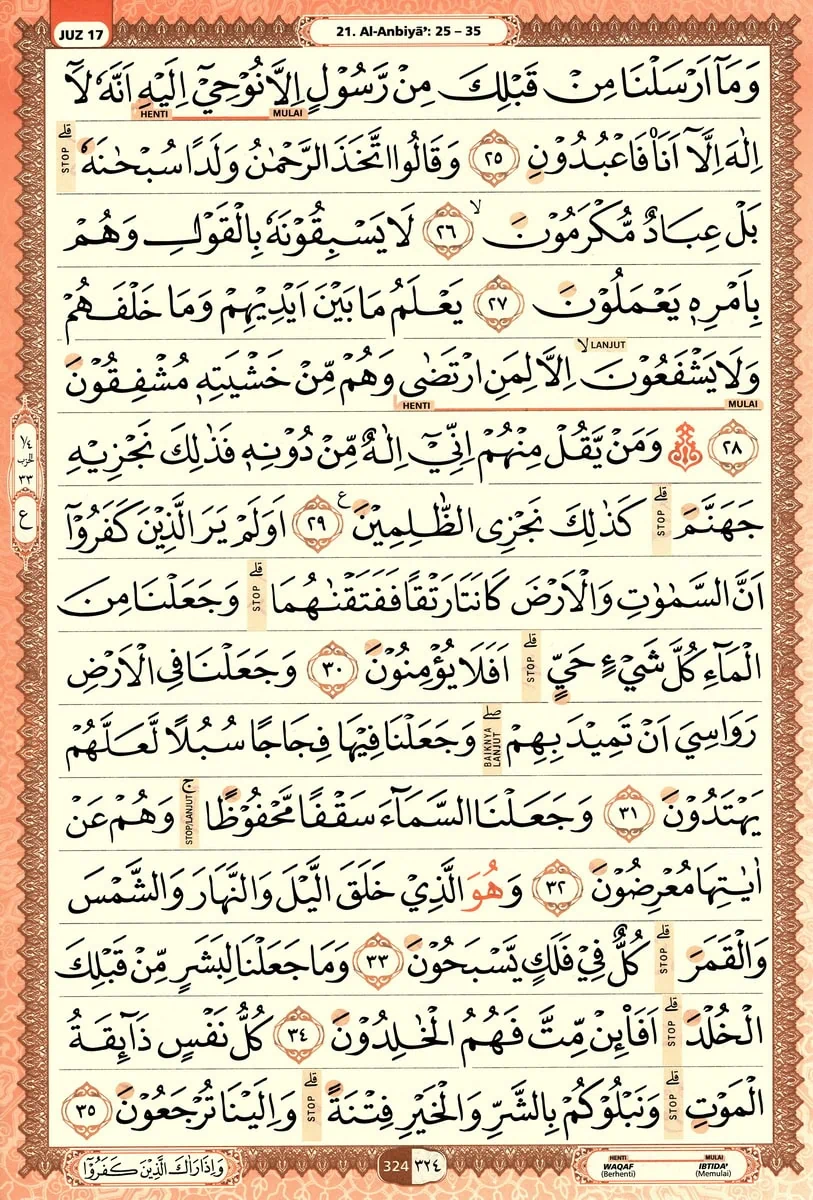 JUZ 17
21. Al-Anbiyā': 25 – 35
وَمَآ اَرْسَلْنَا مِنْ قَبْلِكَ مِنْ رَّسُوْلٍ اِلَّا نُوْحِيْٓ اِلَيْهِ اَنَّهٗ لَآ
HENTI MULAI
اِلٰهَ اِلَّآ اَنَا۠ فَاعْبُدُوْنِ ٢٥ وَقَالُوا اتَّخَذَ الرَّحْمٰنُ وَلَدًا سُبْحٰنَهٗ ۗ STOP
بَلْ عِبَادٌ مُّكْرَمُوْنَ ۙ ٢٦ لَا يَسْبِقُوْنَهٗ بِالْقَوْلِ وَهُمْ
بِاَمْرِهٖ يَعْمَلُوْنَ ٢٧ يَعْلَمُ مَا بَيْنَ اَيْدِيْهِمْ وَمَا خَلْفَهُمْ
LANJUT
وَلَا يَشْفَعُوْنَ ۙ اِلَّا لِمَنِ ارْتَضٰى وَهُمْ مِّنْ خَشْيَتِهٖ مُشْفِقُوْنَ
HENTI MULAI
٢٨ ۞ وَمَنْ يَّقُلْ مِنْهُمْ اِنِّيْٓ اِلٰهٌ مِّنْ دُوْنِهٖ فَذٰلِكَ نَجْزِيْهِ
جَهَنَّمَ ۗ STOP كَذٰلِكَ نَجْزِى الظّٰلِمِيْنَ ࣖ ٢٩ اَوَلَمْ يَرَ الَّذِيْنَ كَفَرُوْٓا
اَنَّ السَّمٰوٰتِ وَالْاَرْضَ كَانَتَا رَتْقًا فَفَتَقْنٰهُمَا ۗ STOP وَجَعَلْنَا مِنَ
الْمَاۤءِ كُلَّ شَيْءٍ حَيٍّ ۗ STOP اَفَلَا يُؤْمِنُوْنَ ٣٠ وَجَعَلْنَا فِى الْاَرْضِ
رَوَاسِيَ اَنْ تَمِيْدَ بِهِمْ ۖ BAIKNYA LANJUT وَجَعَلْنَا فِيْهَا فِجَاجًا سُبُلًا لَّعَلَّهُمْ
يَهْتَدُوْنَ ٣١ وَجَعَلْنَا السَّمَاۤءَ سَقْفًا مَّحْفُوْظًا ۚ STOP/LANJUT وَهُمْ عَنْ
اٰيٰتِهَا مُعْرِضُوْنَ ٣٢ وَهُوَ الَّذِيْ خَلَقَ الَّيْلَ وَالنَّهَارَ وَالشَّمْسَ
وَالْقَمَرَ ۗ STOP كُلٌّ فِيْ فَلَكٍ يَّسْبَحُوْنَ ٣٣ وَمَا جَعَلْنَا لِبَشَرٍ مِّنْ قَبْلِكَ
الْخُلْدَ ۗ STOP اَفَا۟ىِٕنْ مِّتَّ فَهُمُ الْخٰلِدُوْنَ ٣٤ كُلُّ نَفْسٍ ذَاۤىِٕقَةُ
الْمَوْتِ ۗ STOP وَنَبْلُوْكُمْ بِالشَّرِّ وَالْخَيْرِ فِتْنَةً ۗ STOP وَاِلَيْنَا تُرْجَعُوْنَ ٣٥
١/٤
الحزب
٣٣
ع
وَاِذَا رَاٰكَ الَّذِيْنَ كَفَرُوْٓا
324 ٣٢٤
HENTI MULAI
WAQAF IBTIDA'
(Berhenti) (Memulai)